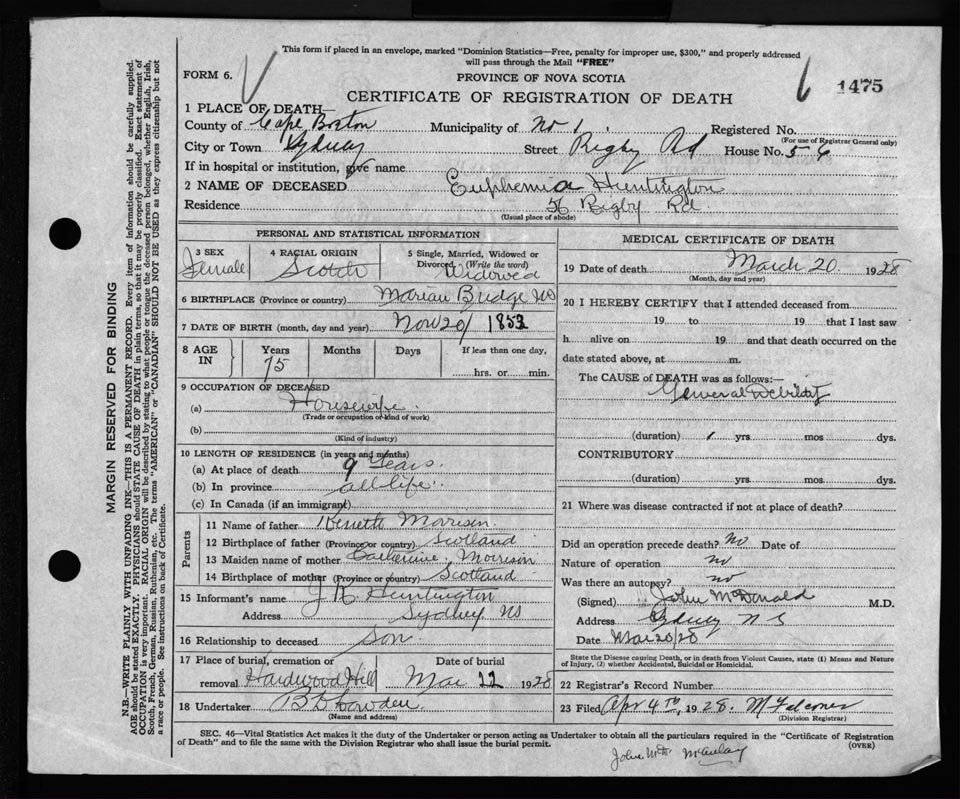 This form if placed in an envelope, marked "Dominion Statistics—Free, penalty for improper use, $300," and properly addressed
will pass through the Mail "FREE"
FORM 6.
PROVINCE OF NOVA SCOTIA
1475
CERTIFICATE OF REGISTRATION OF DEATH
1 PLACE OF DEATH—
County of Cape Breton Municipality of No 1. Registered No.
(For use of Registrar General only)
City or Town Sydney Street Rigby Rd House No. 56
If in hospital or institution, give name
2 NAME OF DECEASED Euphemia Huntington
Residence 56 Rigby Rd.
(Usual place of abode)
PERSONAL AND STATISTICAL INFORMATION
3 SEX Female
4 RACIAL ORIGIN Scotch
5 Single, Married, Widowed or
Divorced (Write the word)
Widowed
6 BIRTHPLACE (Province or country) Marian Bridge NS
7 DATE OF BIRTH (month, day and year) Nov 20/ 1852
8 AGE IN Years 75 Months Days If less than one day,
hrs. or min.
9 OCCUPATION OF DECEASED
(a) Housewife
(Trade or occupation or kind of work)
(b)
(Kind of industry)
10 LENGTH OF RESIDENCE (in years and months)
(a) At place of death 9 Years.
(b) In province all life.
(c) In Canada (if an immigrant)
Parents
11 Name of father Kenneth Morrison
12 Birthplace of father (Province or country) Scotland
13 Maiden name of mother Catherine Morrison
14 Birthplace of mother (Province or country) Scotland
15 Informant's name J N Huntington
Address Sydney NS
16 Relationship to deceased Son
17 Place of burial, cremation or
removal Hardwood Hill
Date of burial
Mar 22 1928
18 Undertaker
(Name and address)
MEDICAL CERTIFICATE OF DEATH
19 Date of death March 20. 1928
(Month, day and year)
20 I HEREBY CERTIFY that I attended deceased from
19 to 19 that I last saw
h alive on 19 and that death occurred on the
date stated above, at m.
The CAUSE of DEATH was as follows:—
General Debility
(duration) 1 yrs. mos. dys.
CONTRIBUTORY
(duration) yrs. mos. dys.
21 Where was disease contracted if not at place of death?
Did an operation precede death? No Date of
Nature of operation no
Was there an autopsy? no
(Signed) John McDonald M.D.
Address Sydney N S
Date Mar 20/28
State the Disease causing Death, or in death from Violent Causes, state (1) Means and Nature
of Injury, (2) whether Accidental, Suicidal or Homicidal.
22 Registrar's Record Number
23 Filed Apr 4th, 1928.
(Division Registrar)
SEC. 46—Vital Statistics Act makes it the duty of the Undertaker or person acting as Undertaker to obtain all the particulars required in the "Certificate of Registration
of Death" and to file the same with the Division Registrar who shall issue the burial permit.
(OVER)
MARGIN RESERVED FOR BINDING
N.B.—WRITE PLAINLY WITH UNFADING INK—THIS IS A PERMANENT RECORD. Every item of information should be carefully supplied.
AGE should be stated EXACTLY. PHYSICIANS should STATE CAUSE OF DEATH in plain terms, so that it may be properly classified. Exact statement of
OCCUPATION is very important. RACIAL ORIGIN will be described by stating to what people or tongue the deceased person belonged, whether English, Irish,
Scotch, French, German, Russian, Ruthenian, etc. The terms "AMERICAN" or "CANADIAN" SHOULD NOT BE USED as they express citizenship but not
a race or people. See instructions on back of Certificate.